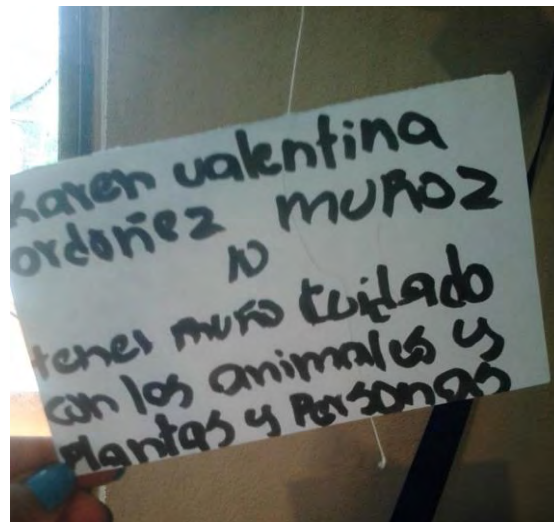 Karen valentina
ordoñez muñoz
10
tener muro cuidado
con los animales y
plantas y Personas